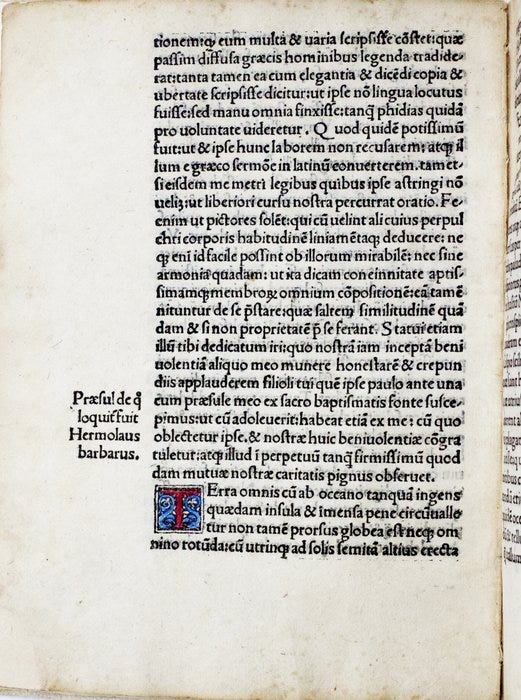 tionem:qꝫ eum multa & uaria scripsisse cōstet:quæ
passim diffusa græcis hominibus legenda tradide-
rat:tanta tamen ea cum elegantia & dicēdi copia &
ubertate scripsisse dicitur:ut ipse nō lingua locutus
fuisse:sed manu omnia finxisse:tanq̄ phidias quidā
pro uoluntate uideretur. Quod quidē potissimū
fuit:ut & ipse hunc laborem non recusarem:atqꝫ il
lum e græco sermōe in latinū conuerterem. tamet-
si eisdem me metri legibus quibus ipse astringi nō
ueli:ut liberiori cursu nostra percurrat oratio. Fe-
cenim ut pictores solēt:qui cū uelint alicuius perpul
chri corporis habitudinē liniamētaqꝫ deducere: ne
qꝫ eni id facile possint ob illorum mirabilē: nec sine
armonia quadam: ut ita dicam concinnitate aptis-
simamqꝫ membroꝝ omnium cōpositionē:cū tamē
nituntur de se p̄stare:quæ saltem similitudinē quā
dam & si non proprietatē p̄ se ferant. Statui etiam
illū tibi dedicatum iri:quo nostrā iam inceptā beni
uolentiā aliquo meo munere honestarē & crepun
diis applauderem filioli tui quē ipse paulo ante una
cum præsule meo ex sacro baptismatis fonte susce-
pimus:ut cū adoleuerit:habeat etiā ex me: cū quo
oblectetur ipse. & nostræ huic beniuolentiæ cōgra
tuletur:atqꝫ illud ī perpetuū tanq̄ firmissimū quod
dam mutuæ nostræ caritatis pignus obseruet.
Præsul de q̄
loquit̄ fuit
Hermolaus
barbarus.
TErra omnis cū ab oceano tanquā ingens
quædam insula & īmensa pene circūualle
tur non tamē prorsus globea est:neqꝫ om
nino rotūda:cū utrinqꝫ ad solis semitā altius erecta